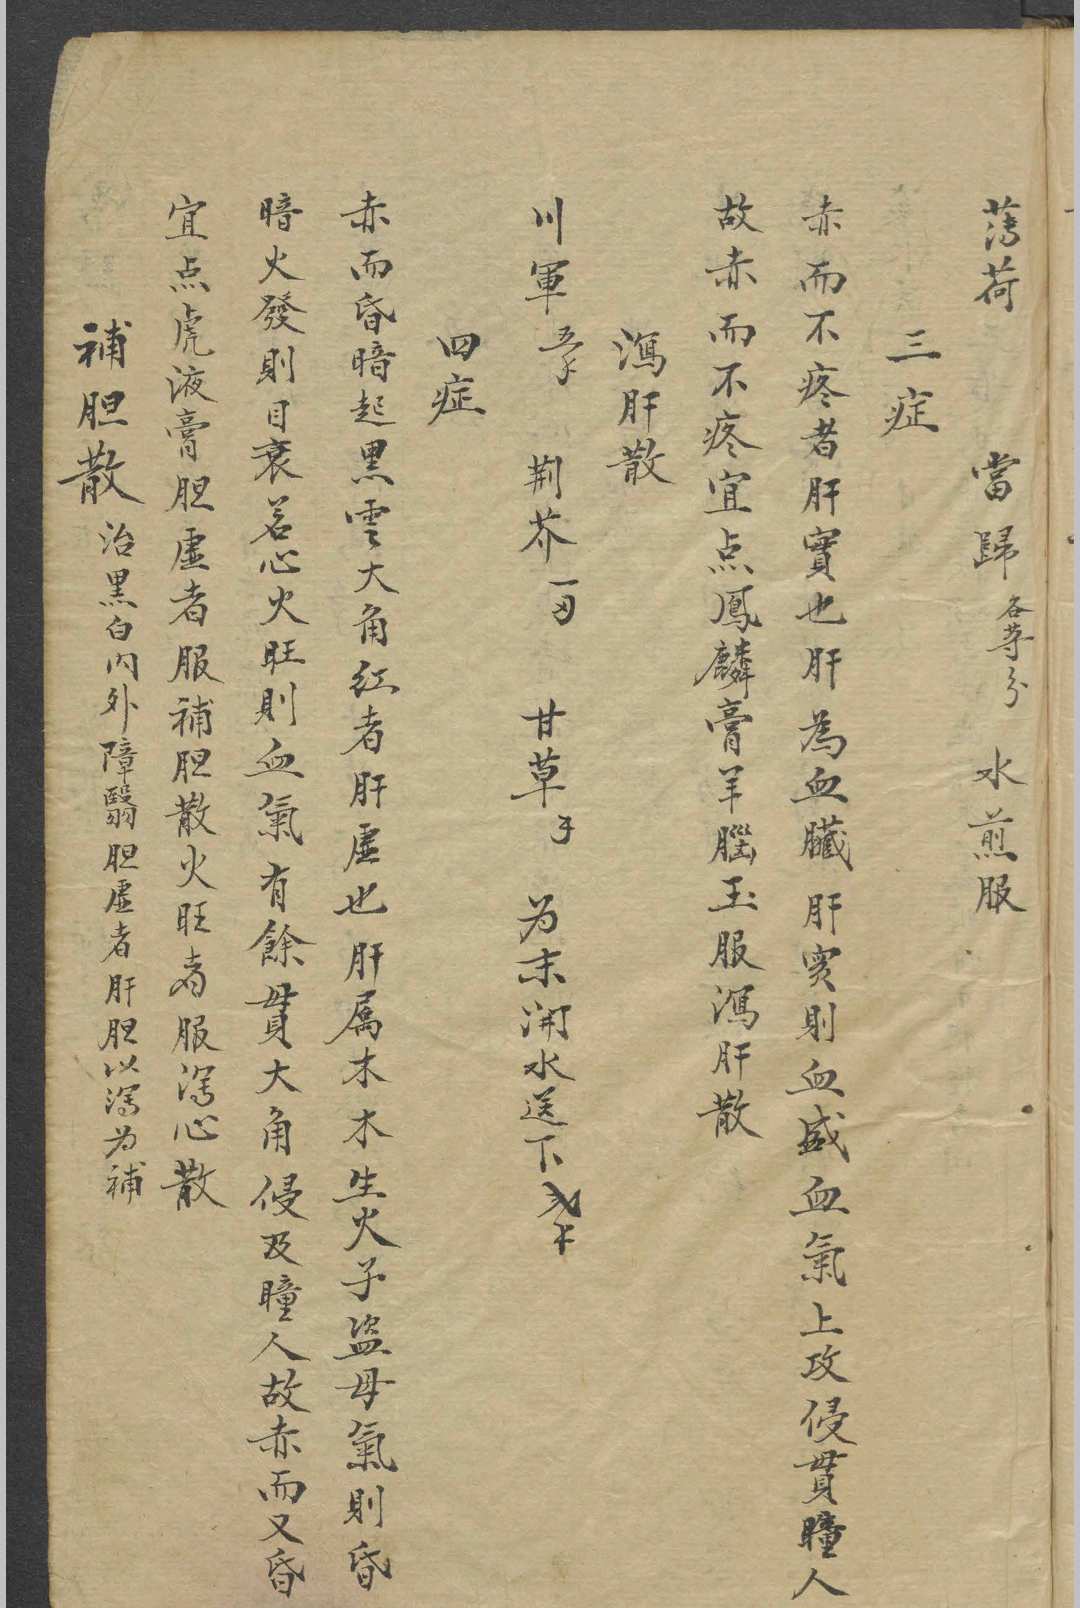 薄荷 當歸 各等分 水煎服
三症
赤而不疼者肝實也肝為血臟肝実則血盛血氣上攻侵貫瞳人
故赤而不疼宜点鳳麟膏羊腦玉服瀉肝散
瀉肝散
川軍 荆芥 甘草 为末開水送下
四症
赤而昏暗起黒雲大角紅者肝虚也肝属木木生火子盗母氣則昏
暗火發則目衰若心火旺則血氣有餘貫大角侵及瞳人故赤而又昏
宜点虎液膏胆虚者服補胆散火旺者服瀉心散
補胆散 治黒白内外障翳胆虚者肝胆以瀉为補